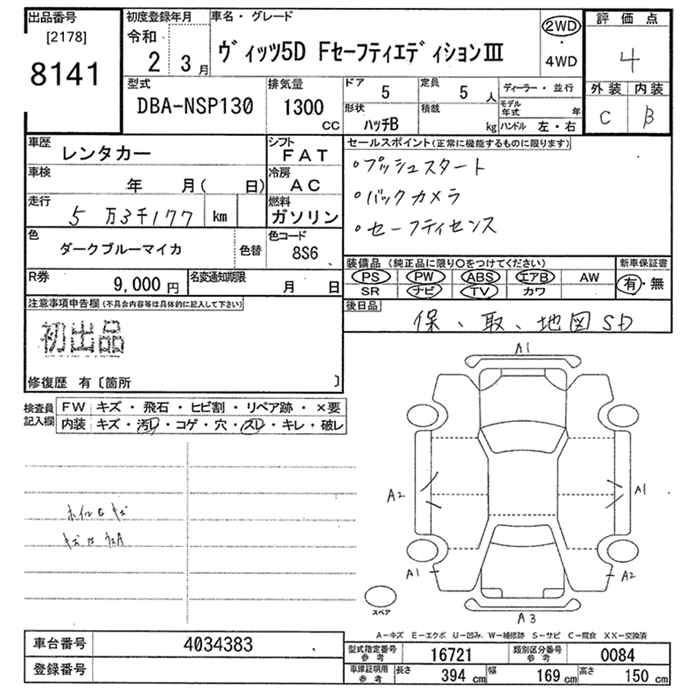 出品番号 初度登録年月 車名・グレード 評価点
[2178] 令和 2WD
8141 2 3月 ヴィッツ5D FセーフティエディションⅢ ・ 4WD 4
型式 排気量 ドア 定員 ディーラー・並行 外装 内装
DBA-NSP130 1300 CC 5 5人 モデル年式 年 C B
形状 積載
ハッチB kg ハンドル 左・右
車歴 レンタカー シフト FAT セールスポイント(正常に機能するものに限ります)
車検 年 月( 日) 冷房 AC 。プッシュスタート
走行 5万3千177 km 燃料 ガソリン 。バックカメラ
色 ダークブルーマイカ 色替 色コード 8S6 。セーフティセンス
R券 9,000円 名変通知期限 月 日 装備品(純正品に限り〇をつけてください) 新車保証書
PS PW ABS エアB AW 有・無
SR ナビ TV カワ
注意事項申告欄(不具合内容等は具体的に記入して下さい) 後日品
初出品 保、取、地図SD
修復歴 有〔箇所 〕
検査員記入欄 FW キズ・飛石・ヒビ割・リペア跡・×要
内装 キズ・汚レ・コゲ・穴・スレ・キレ・破レ
A1
A2 A1
A1 A2
スペア A3
A-キズ E-エクボ U-凹み W-補修跡 S-サビ C-腐食 XX-交換済
車台番号 4034383 型式指定番号 参考 16721 類別区分番号 参考 0084
登録番号 車庫証明用 参考 長さ 394 cm 幅 169 cm 高さ 150 cm